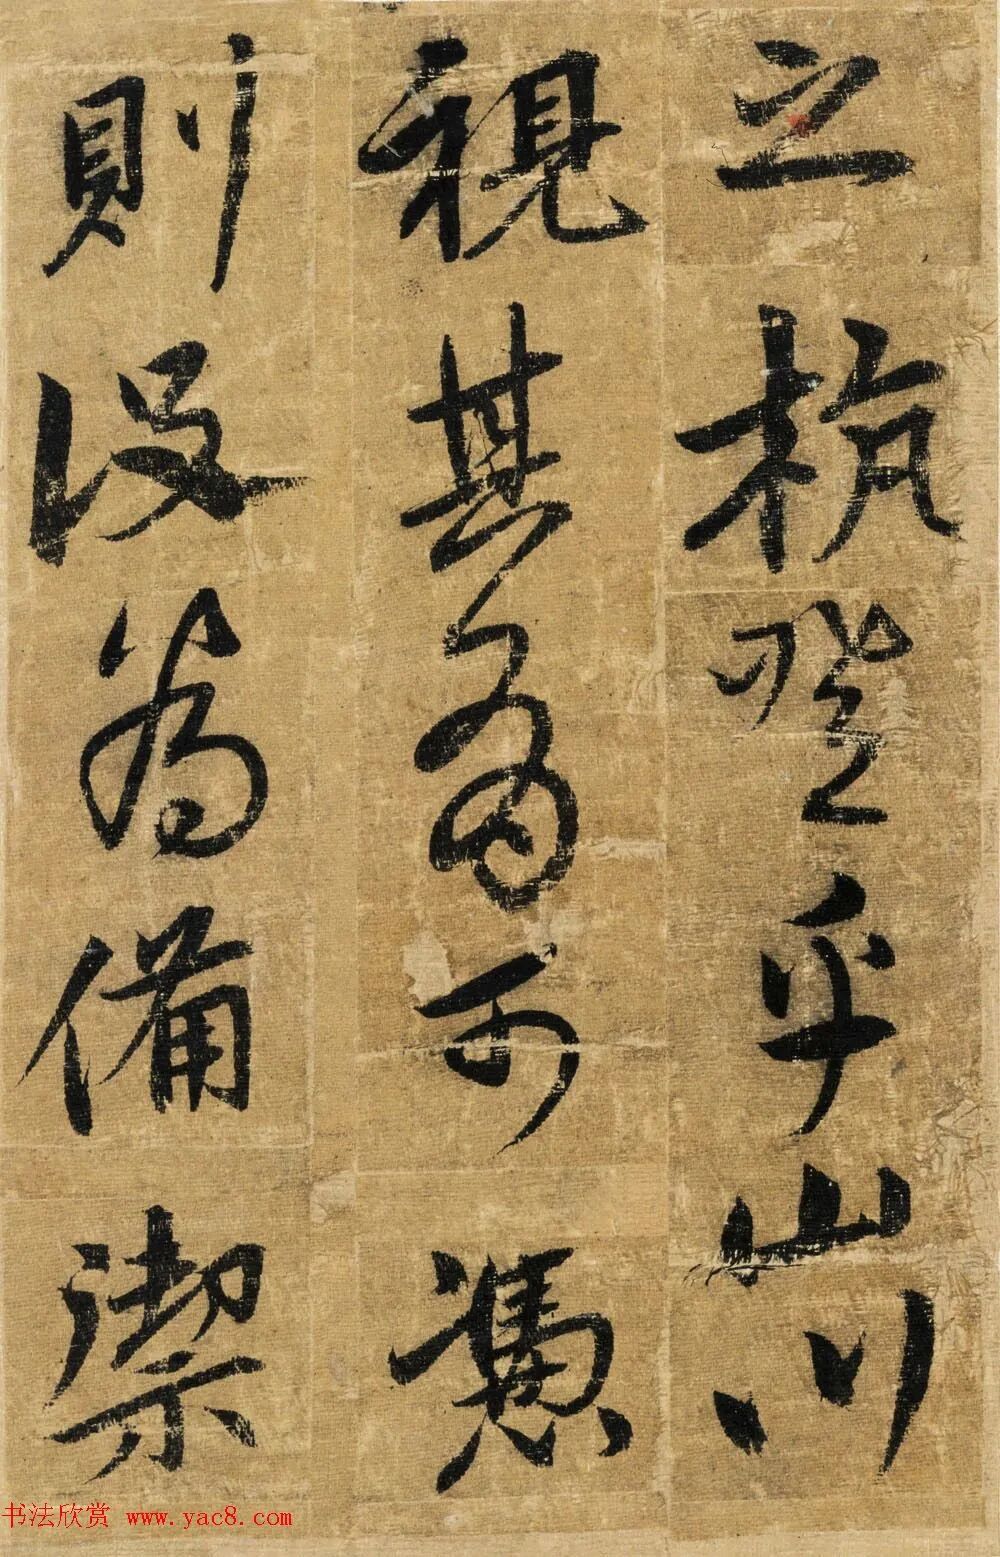 之杭登乎山川
視其有可馮
則設為備禦
书法欣赏 www.yac8.com